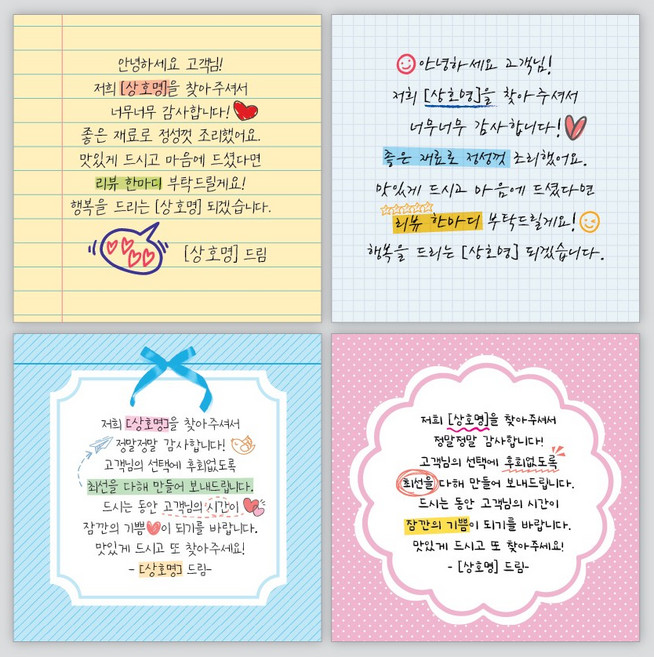 안녕하세요 고객님!
저희 [상호명]을 찾아주셔서
너무너무 감사합니다!
좋은 재료로 정성껏 조리했어요.
맛있게 드시고 마음에 드셨다면
리뷰 한마디 부탁드릴게요!
행복을 드리는 [상호명] 되겠습니다.
[상호명] 드림
안녕하세요 고객님!
저희 [상호명]을 찾아주셔서
너무너무 감사합니다!
좋은 재료로 정성껏 조리했어요.
맛있게 드시고 마음에 드셨다면
리뷰 한마디 부탁드릴게요!
행복을 드리는 [상호명] 되겠습니다.
저희 [상호명]을 찾아주셔서
정말정말 감사합니다!
고객님의 선택에 후회없도록
최선을 다해 만들어 보내드립니다.
드시는 동안 고객님의 시간이
잠깐의 기쁨이 되기를 바랍니다.
맛있게 드시고 또 찾아주세요!
- [상호명] 드림-
저희 [상호명]을 찾아주셔서
정말정말 감사합니다!
고객님의 선택에 후회없도록
최선을 다해 만들어 보내드립니다.
드시는 동안 고객님의 시간이
잠깐의 기쁨이 되기를 바랍니다.
맛있게 드시고 또 찾아주세요!
- [상호명] 드림-